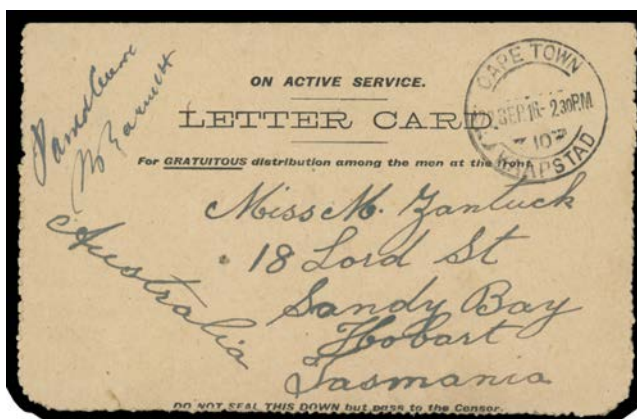 Passed Censor
ON ACTIVE SERVICE.
LETTER CARD.
For GRATUITOUS distribution among the men at the front.
CAPE TOWN
SEP 16 - 2.30 PM
10
KAAPSTAD
Miss M. Zantuck
18 Lord St
Sandy Bay
Hobart
Tasmania
Australia
DO NOT SEAL THIS DOWN but pass to the Censor.